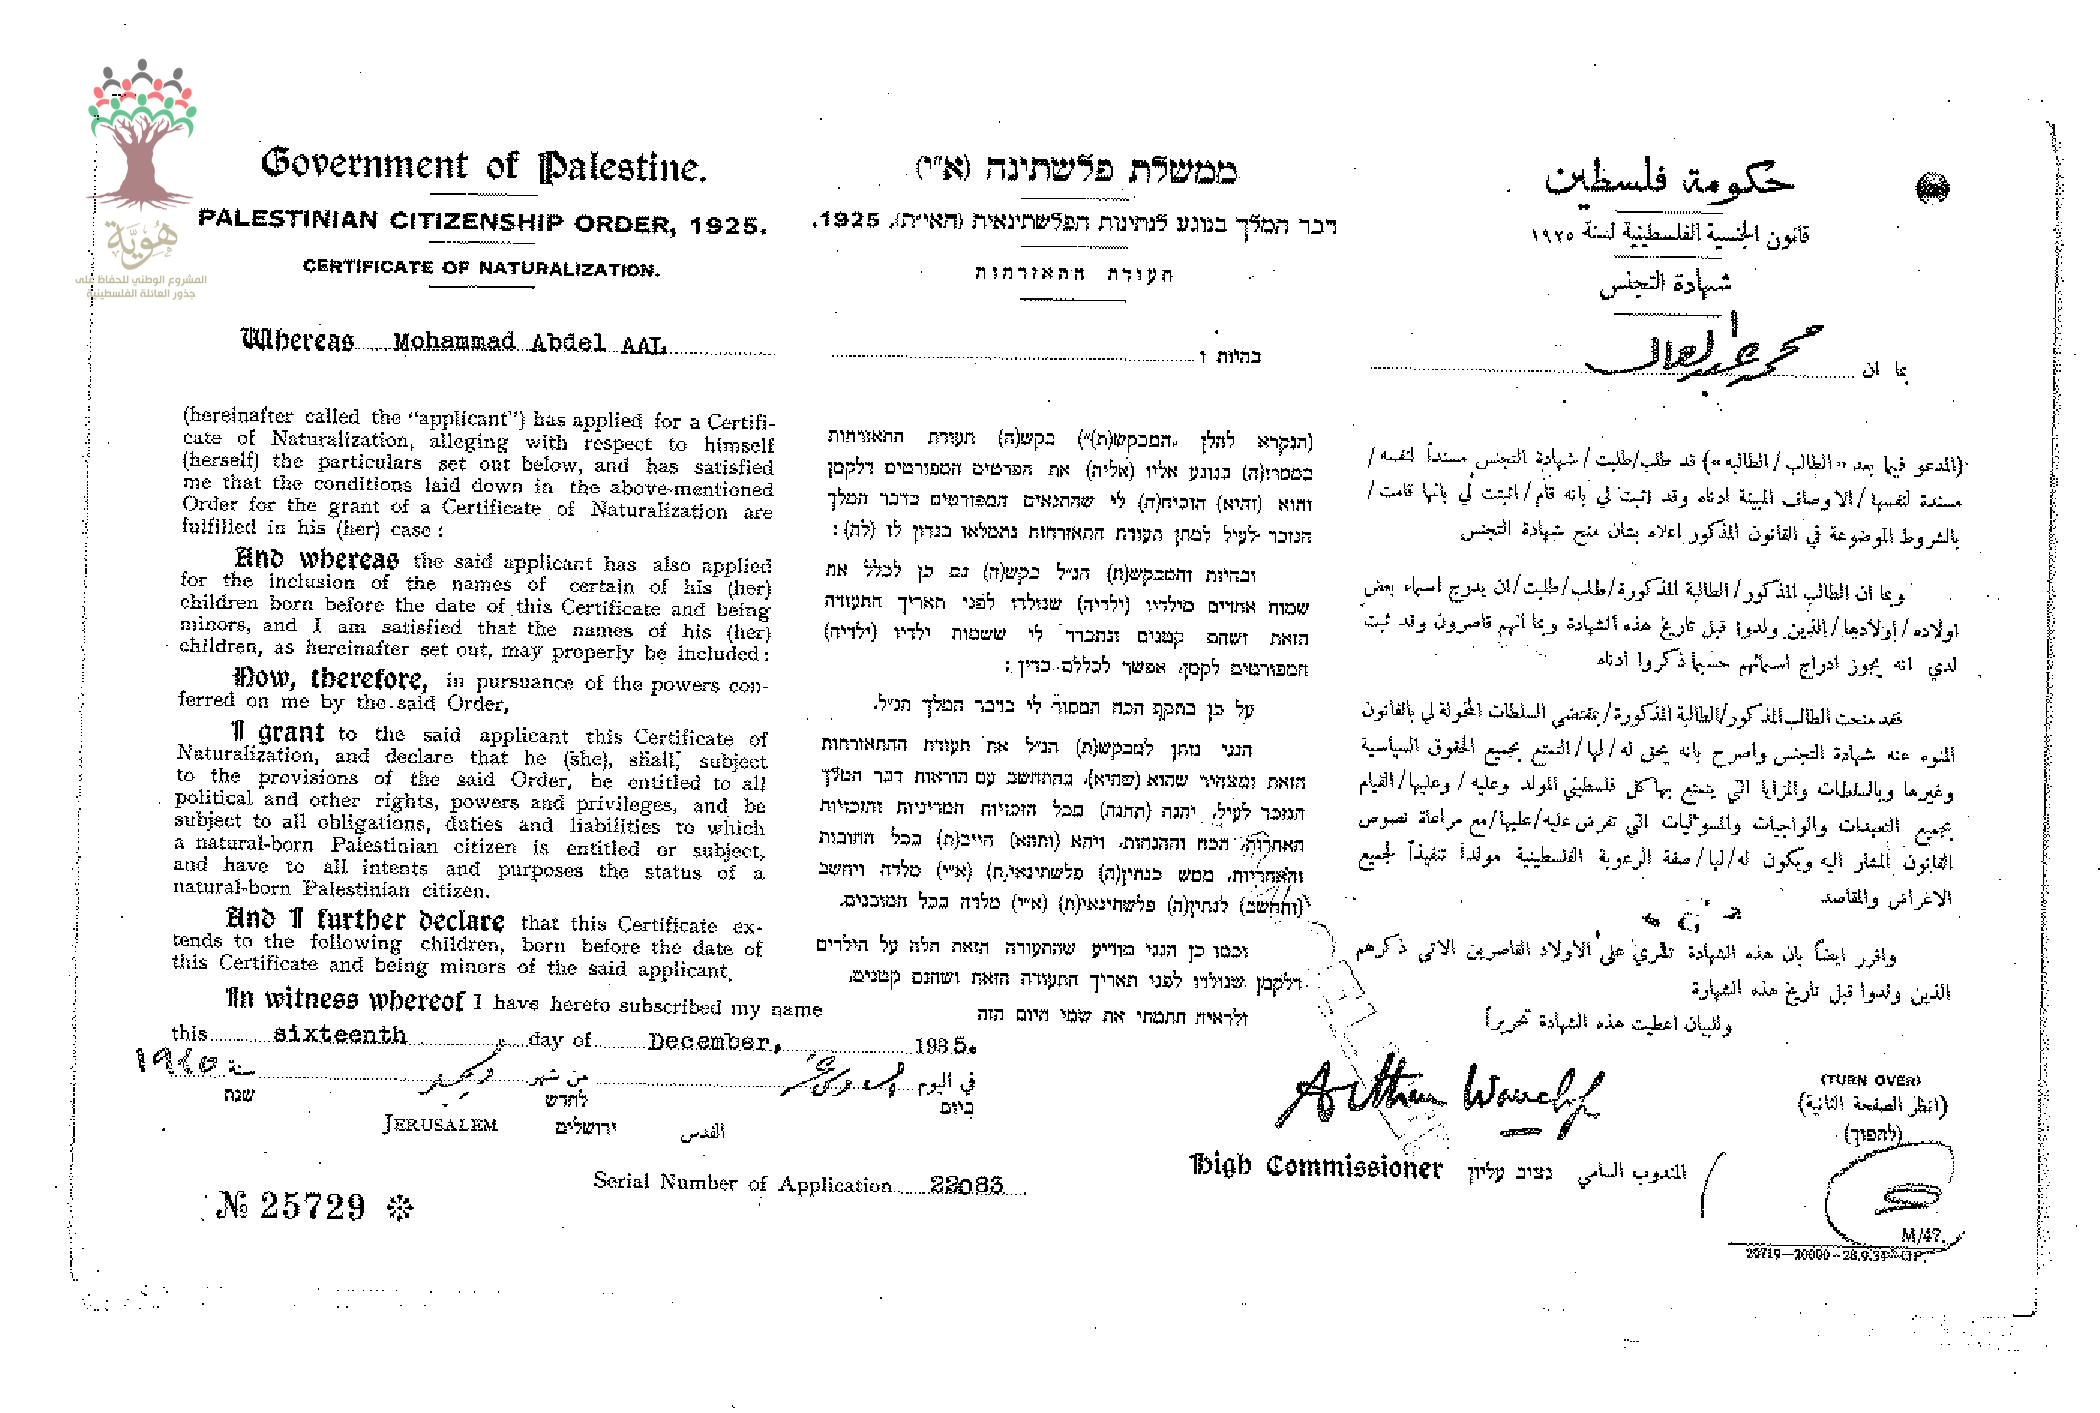 هوية
المشروع الوطني للحفاظ على
جذور العائلة الفلسطينية
Government of Palestine.
PALESTINIAN CITIZENSHIP ORDER, 1925.
CERTIFICATE OF NATURALIZATION.
Whereas Mohammad Abdel AAL
(hereinafter called the “applicant”) has applied for a Certifi-
cate of Naturalization, alleging with respect to himself
(herself) the particulars set out below, and has satisfied
me that the conditions laid down in the above-mentioned
Order for the grant of a Certificate of Naturalization are
fulfilled in his (her) case :
And whereas the said applicant has also applied
for the inclusion of the names of certain of his (her)
children born before the date of this Certificate and being
minors, and I am satisfied that the names of his (her)
children, as hereinafter set out, may properly be included :
Now, therefore, in pursuance of the powers con-
ferred on me by the said Order,
I grant to the said applicant this Certificate of
Naturalization, and declare that he (she), shall, subject
to the provisions of the said Order, be entitled to all
political and other rights, powers and privileges, and be
subject to all obligations, duties and liabilities to which
a natural-born Palestinian citizen is entitled or subject,
and have to all intents and purposes the status of a
natural-born Palestinian citizen.
And I further declare that this Certificate ex-
tends to the following children, born before the date of
this Certificate and being minors of the said applicant.
In witness whereof I have hereto subscribed my name
this sixteenth day of December, 1935.
في اليوم من شهر سنة
ביום לחדש שנת
JERUSALEM ירושלים القدس
Serial Number of Application 22083
№ 25729
ממשלת פלשתינה (א״י)
דבר המלך בנוגע לנתינות הפלשתינאית (הא״ית), 1925.
תעודת התאזרחות
בהיות ו
(הנקרא להלן „המבקש(ת)״) בקש(ה) תעודת התאזרחות
במסרו(ה) בנוגע אליו (אליה) את הפרטים המפורטים דלקמן
והוא (והיא) הוכיח(ה) לי שהתנאים המפורטים בדבר המלך
הנזכר לעיל למתן תעודת התאזרחות נתמלאו בנדון לו (לה) :
ובהיות והמבקש(ת) הנ״ל בקש(ה) גם כן לכלל את
שמות אחדים מילדיו (ילדיה) שנולדו לפני תאריך התעודה
הזאת ושהם קטנים ונתברר לי ששמות ילדיו (ילדיה)
המפורטים לקמן, אפשר לכללם כדין :
על כן בתקף הכח המסור לי בדבר המלך הנ״ל.
הנני נותן למבקש(ת) הנ״ל את תעודת ההתאזרחות
הזאת ומצהיר שהוא (שהיא), בהתחשב עם הוראות דבר המלך
הנזכר לעיל, יהנה (תהנה) מכל הזכויות המדיניות והזכויות
האחרות, הכח וההנחות, ויהא (ותהא) חייב(ת) בכל החובות
והאחריות, ממש כנתין(ה) פלשתינאי(ת) (א״י) מלדה ויחשב
(ותחשב) לנתין(ה) פלשתינאי(ת) (א״י) מלדה בכל המובנים.
וכמו כן הנני מודיע שהתעודה הזאת חלה על הילדים
דלקמן שנולדו לפני תאריך התעודה הזאת ושהנם קטנים.
ולראיה חתמתי את שמי היום הזה
حكومة فلسطين
قانون الجنسية الفلسطينية لسنة ١٩٢٥
شهادة التجنس
بما ان محمد عبد العال
(المدعو فيما بعد «الطالب/الطالبه») قد طلب/طلبت/شهادة التجنس مسنداً لنفسه/
مسندة لنفسها/الاوصاف المبينة ادناه وقد اثبت لي بانه قام/اثبتت لي بانها قامت/
بالشروط الموضوعة في القانون المذكور اعلاه بشان منح شهادة التجنس
وبما ان الطالب المذكور/الطالبة المذكورة/طلب/طلبت/ان يدرج اسماء بعض
اولاده/اولادها/الذين ولدوا قبل تاريخ هذه الشهادة وبما انهم قاصرون وقد ثبت
لدي انه يجوز ادراج اسمائهم حسبما ذكروا ادناه
فقد منحت الطالب المذكور/الطالبة المذكورة/بمقتضى السلطات المخولة لي بالقانون
المنوه عنه شهادة التجنس واصرح بانه يحق له/لها/التمتع بجميع الحقوق السياسية
وغيرها وبالسلطات والمزايا التي يتمتع بها كل فلسطيني المولد وعليه/وعليها/القيام
بجميع التعهدات والواجبات والمسوليات التي تفرض عليه/عليها/مع مراعاة نصوص
القانون المشار اليه ويكون له/لها/صفة الرعوية الفلسطينية مولداً تنفيذاً لجميع
الاغراض والمقاصد
واقرر ايضاً بان هذه الشهادة تسري على الاولاد القاصرين الاتي ذكرهم
الذين ولدوا قبل تاريخ هذه الشهادة
وللبيان اعطيت هذه الشهادة تحريراً
Arthur Wauchope
High Commissioner נציב עליון المندوب السامي
(TURN OVER)
(انظر الصفحة الثانية)
(להפוך)
M/47.